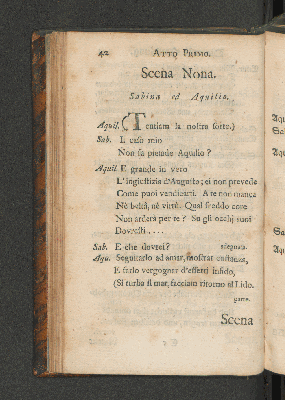 42 ATTO PRIMO.
Scena Nona.
Sabina ed Aquilio.
Aquil. (Tentiam la nostra sorte.)
Sab. Il caso mio
Non fa pietade Aquilio?
Aquil. E grande in vero
L'ingiustizia d'Augusto; ei non prevede
Come puoi vendicarti. A te non manca
Nè beltà, nè virtù. Qual freddo core
Non arderà per te? Su gli occhj suoi
Dovresti ....
Sab. E che dovrei? sdegnata.
Aqu. Seguitarlo ad amar, mostrar costanza,
E farlo vergognar d'esserti infido,
(Si turba il mar, facciam ritorno al Lido.
parte.
Scena